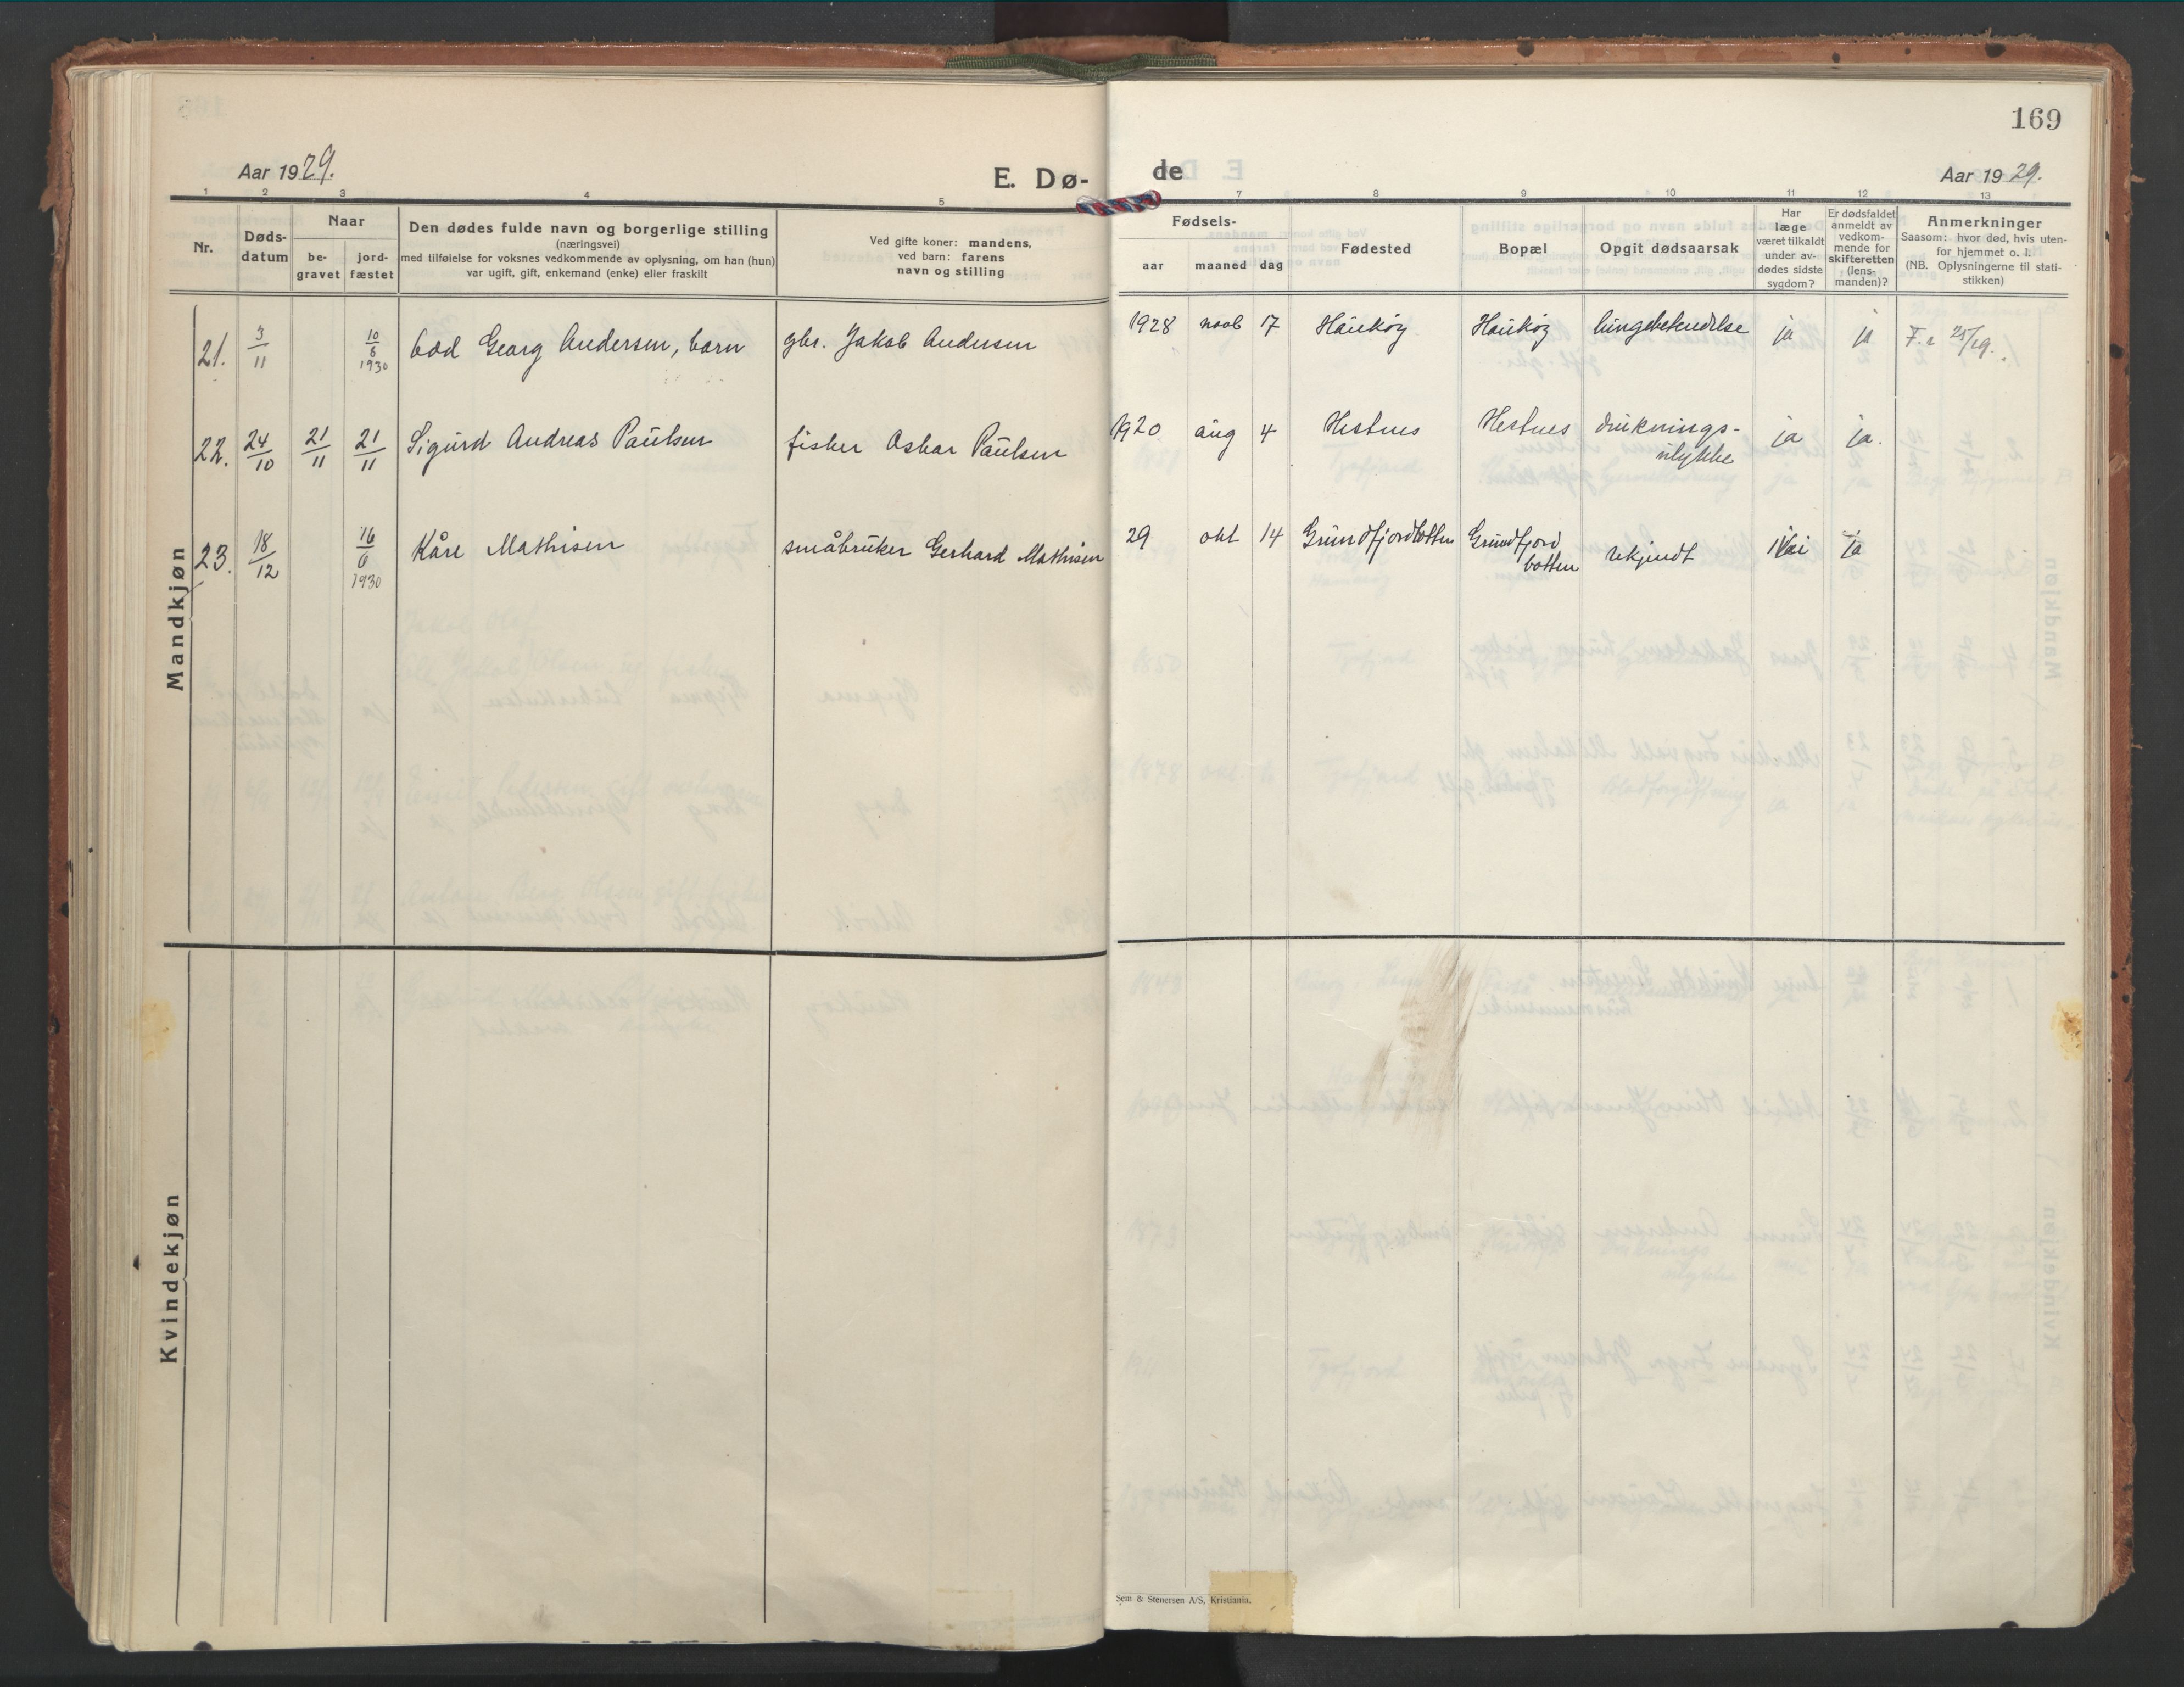 169
Aar 1929.
E. Dø-
de
Aar 1929.
1 2 3 4 5 7 8 9 10 11 12 13
Nr.
Døds-
datum
Naar
be-
gravet
jord-
fæstet
Den dødes fulde navn og borgerlige stilling
(næringsvei)
med tilføielse for voksnes vedkommende av oplysning, om han (hun)
var ugift, gift, enkemand (enke) eller fraskilt
Ved gifte koner: mandens,
ved barn: farens
navn og stilling
Fødsels-
aar maaned dag
Fødested
Bopæl
Opgit dødsaarsak
Har
læge
været tilkaldt
under av-
dødes sidste
sygdom?
Er dødsfaldet
anmeldt av
vedkom-
mende for
skifteretten
(lens-
manden)?
Anmerkninger
Saasom: hvor død, hvis uten-
for hjemmet o. l.
(NB. Oplysningerne til stati-
stikken)
Mandkjøn
21. 3/11 10/6 1930 Odd Georg Andersen, barn gbr. Jakob Andersen 1928 novb 17 Haukøy Haukøy lungebetendelse ja ja F. r 25/29.
22. 24/10 21/11 21/11 Sigurd Andreas Paulsen fisker Oskar Paulsen 1920 aug 4 Hestnes Hestnes druknings- ja ja.
ulykke
23. 18/12 16/6 1930 Kåre Mathisen småbruker Gerhard Mathisen 29 okt 14 Grundfjordbotten Grundfjord ukjendt Nei ja
botten
Kvindekjøn
Sem & Stenersen A/S, Kristiania.